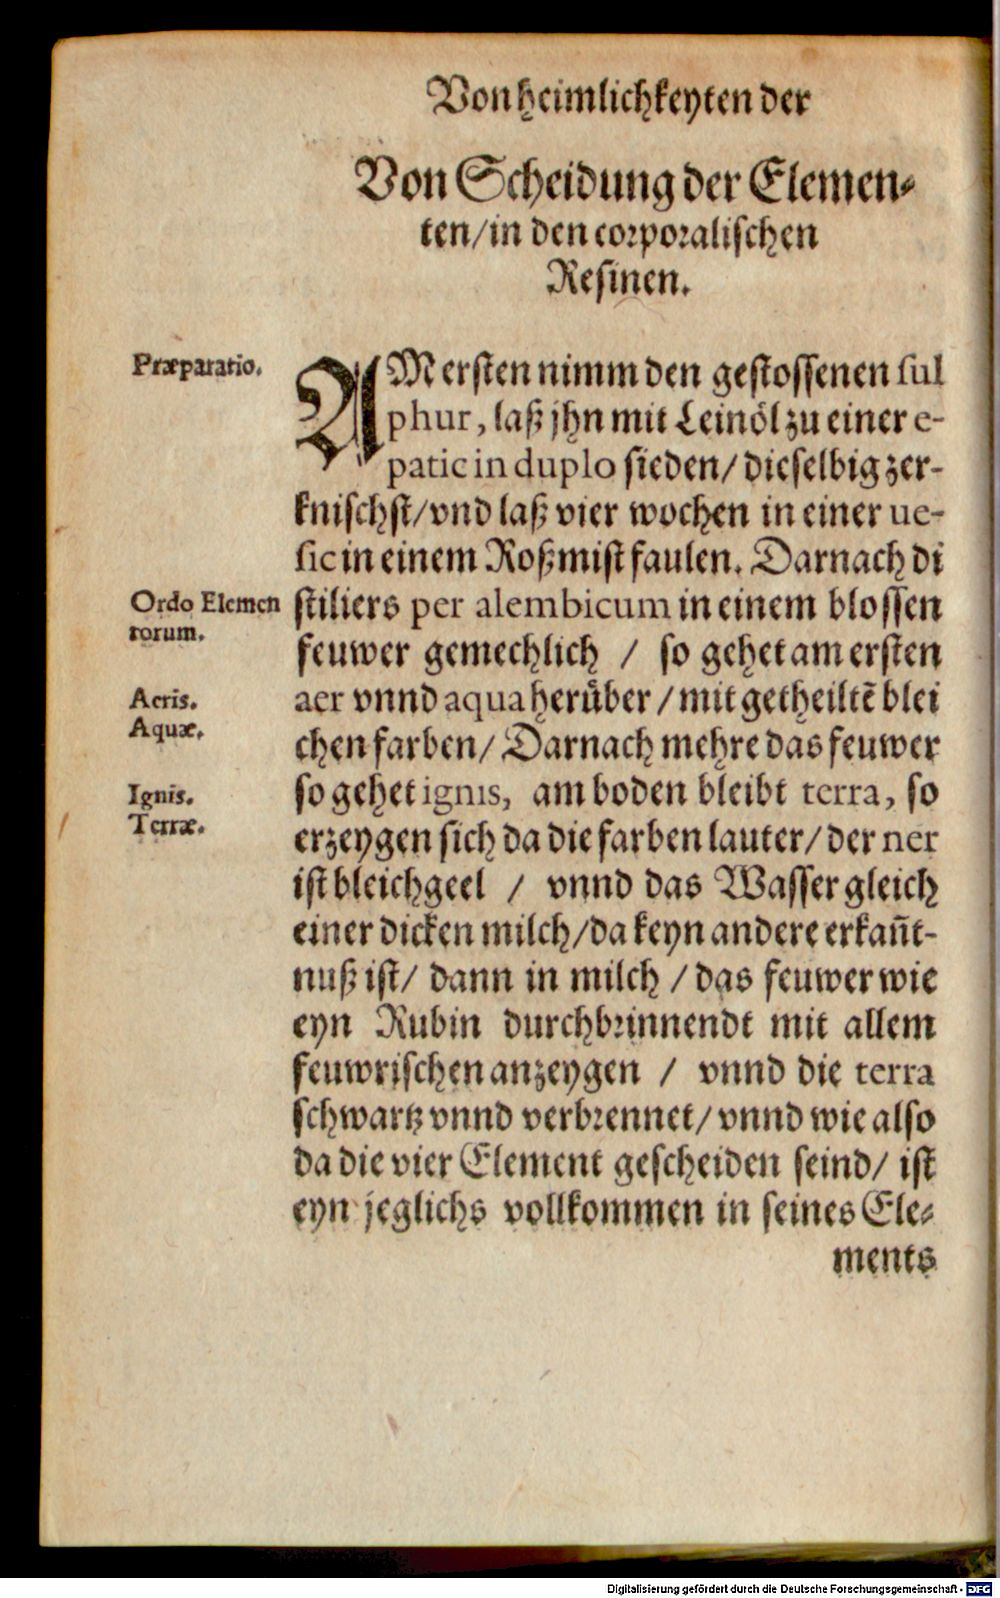 Von heimlichkeyten der
Von Scheidung der Elemen-
ten/in den corporalischen
Resinen.
Præparatio.
AM ersten nimm den gestossenen sul
phur, laß jhn mit Leinöl zu einer e-
patic in duplo sieden/ dieselbig zer-
knischst/vnd laß vier wochen in einer ue-
sic in einem Roßmist faulen. Darnach di
Ordo Elemen
torum.
stiliers per alembicum in einem blossen
feuwer gemechlich / so gehet am ersten
Aeris.
aer vnnd aqua herüber / mit getheiltē blei
Aquæ.
chen farben/ Darnach mehre das feuwer
Ignis.
so gehet ignis, am boden bleibt terra, so
Terræ.
erzeygen sich da die farben lauter/ der aer
ist bleichgeel / vnnd das Wasser gleich
einer dicken milch/da keyn andere erkañt-
nuß ist/ dann in milch / das feuwer wie
eyn Rubin durchbrinnendt mit allem
feuwrischen anzeygen / vnnd die terra
schwartz vnnd verbrennet/ vnnd wie also
da die vier Element gescheiden seind/ ist
eyn jeglichs vollkommen in seines Ele-
ments
Digitalisierung gefördert durch die Deutsche Forschungsgemeinschaft - DFG